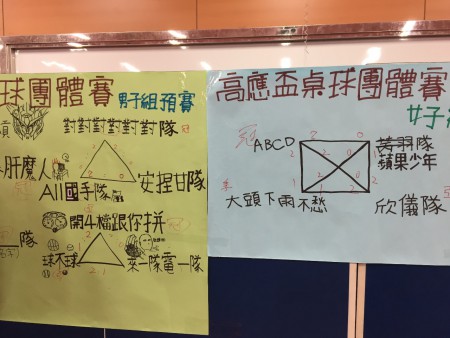 球團體賽
男子組預賽
對對對對對對隊
冠
肝魔
All國手隊
安捏甘隊
開4檔跟你拼
冠
隊
球不球
來一隊電一隊
高應盃桌球團體賽
女子
冠
ABCD
黃羽隊
蘋果少年
大頭下雨不愁
欣儀隊